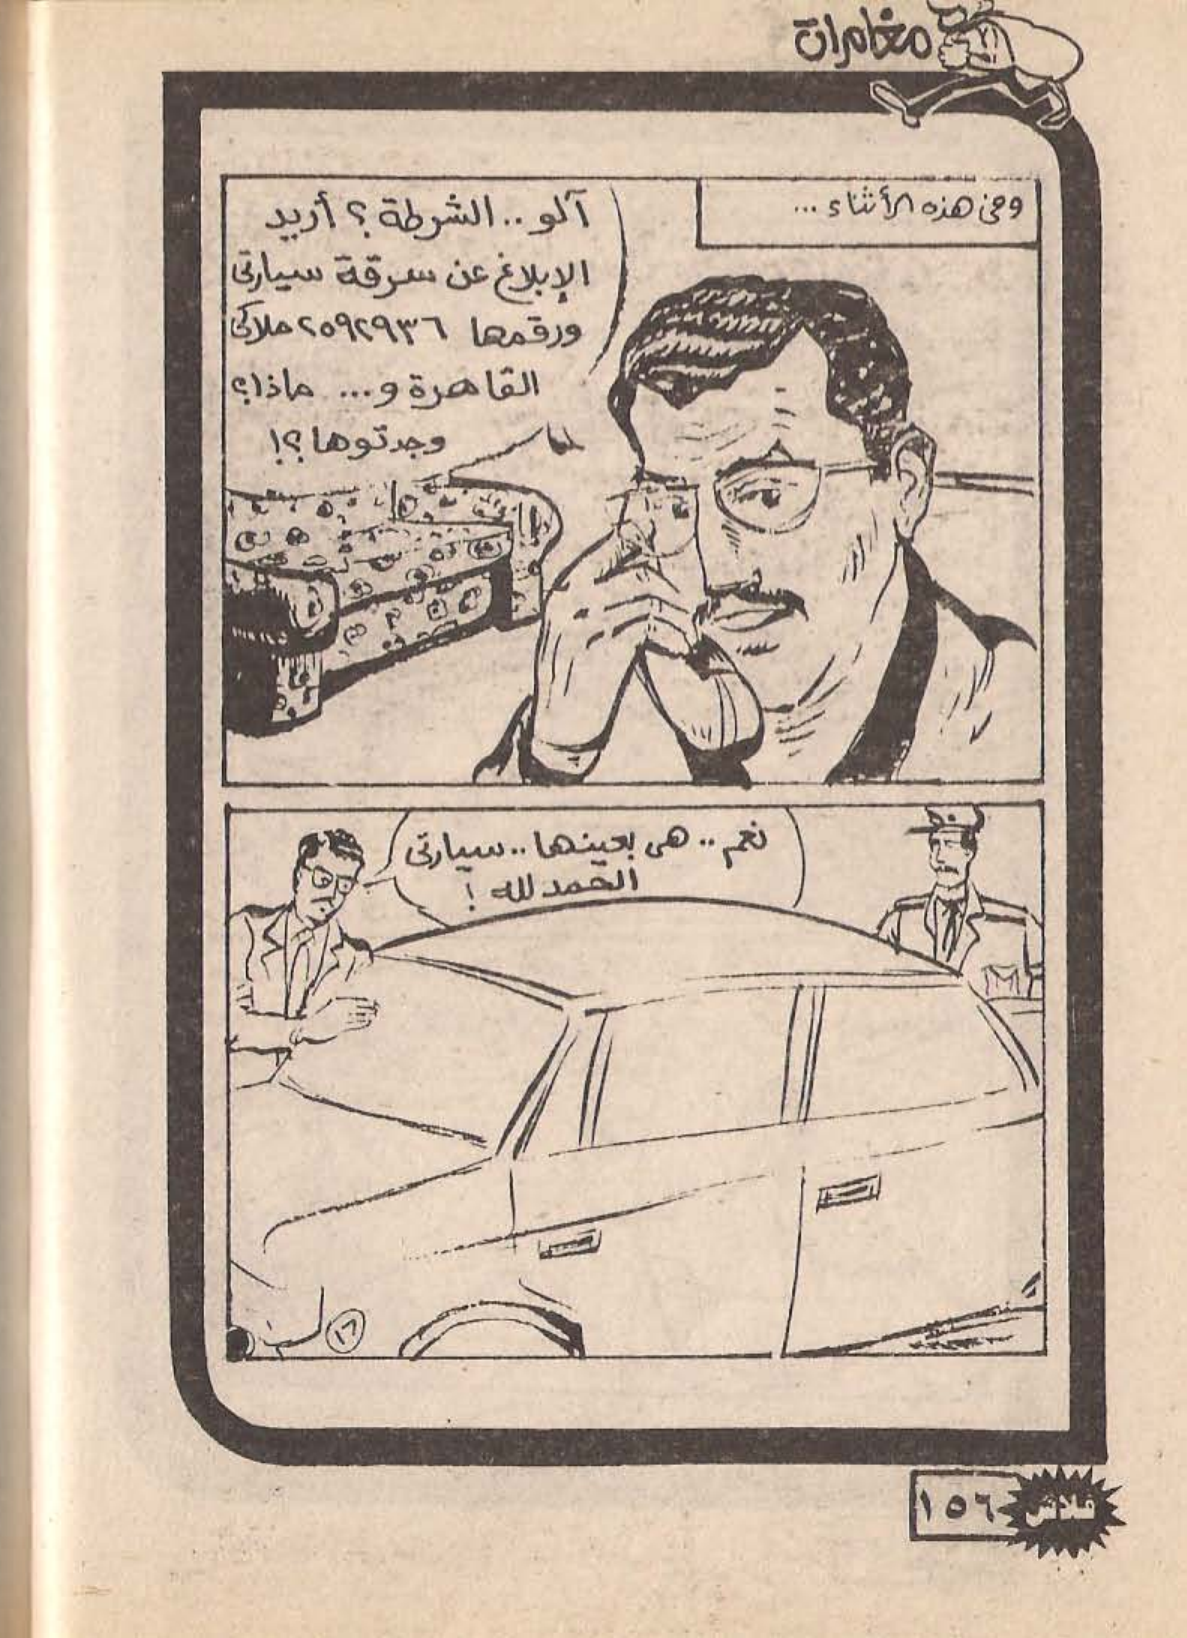 مغامرات
وفى هذه الأثناء ...
آلو .. الشرطة ؟ أريد
الإبلاغ عن سرقة سيارتى
ورقمها ٢٥٩٢٩٣٦ ملاكى
القاهرة و... ماذا؟
وجدتوها ؟!
نعم .. هى بعينها .. سيارتى
الحمد لله !
١٦
١٥٦
فلاش